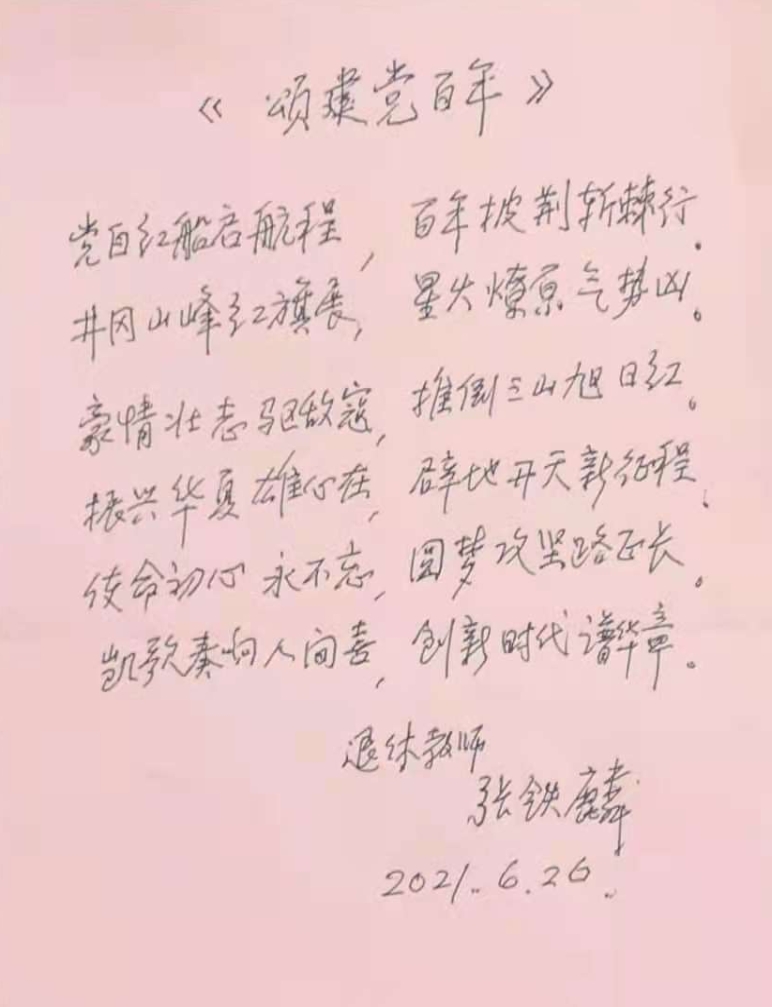 《颂建党百年》
党自红船启航程，百年披荆斩棘行。
井冈山峰红旗展，星火燎原气势凶。
豪情壮志驱敌寇，推倒三山旭日红。
振兴华夏雄心在，辟地开天新征程。
使命初心永不忘，圆梦攻坚路正长。
凯歌奏响人间喜，创新时代谱华章。
退休教师
张铁麟
2021.6.26.